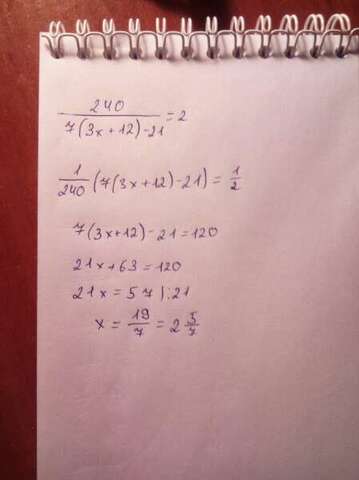 240/(7(3x+12)-21) = 2
1/240 (7(3x+12)-21) = 1/2
7(3x+12)-21 = 120
21x+63 = 120
21x = 57 |:21
x = 19/7 = 2 5/7